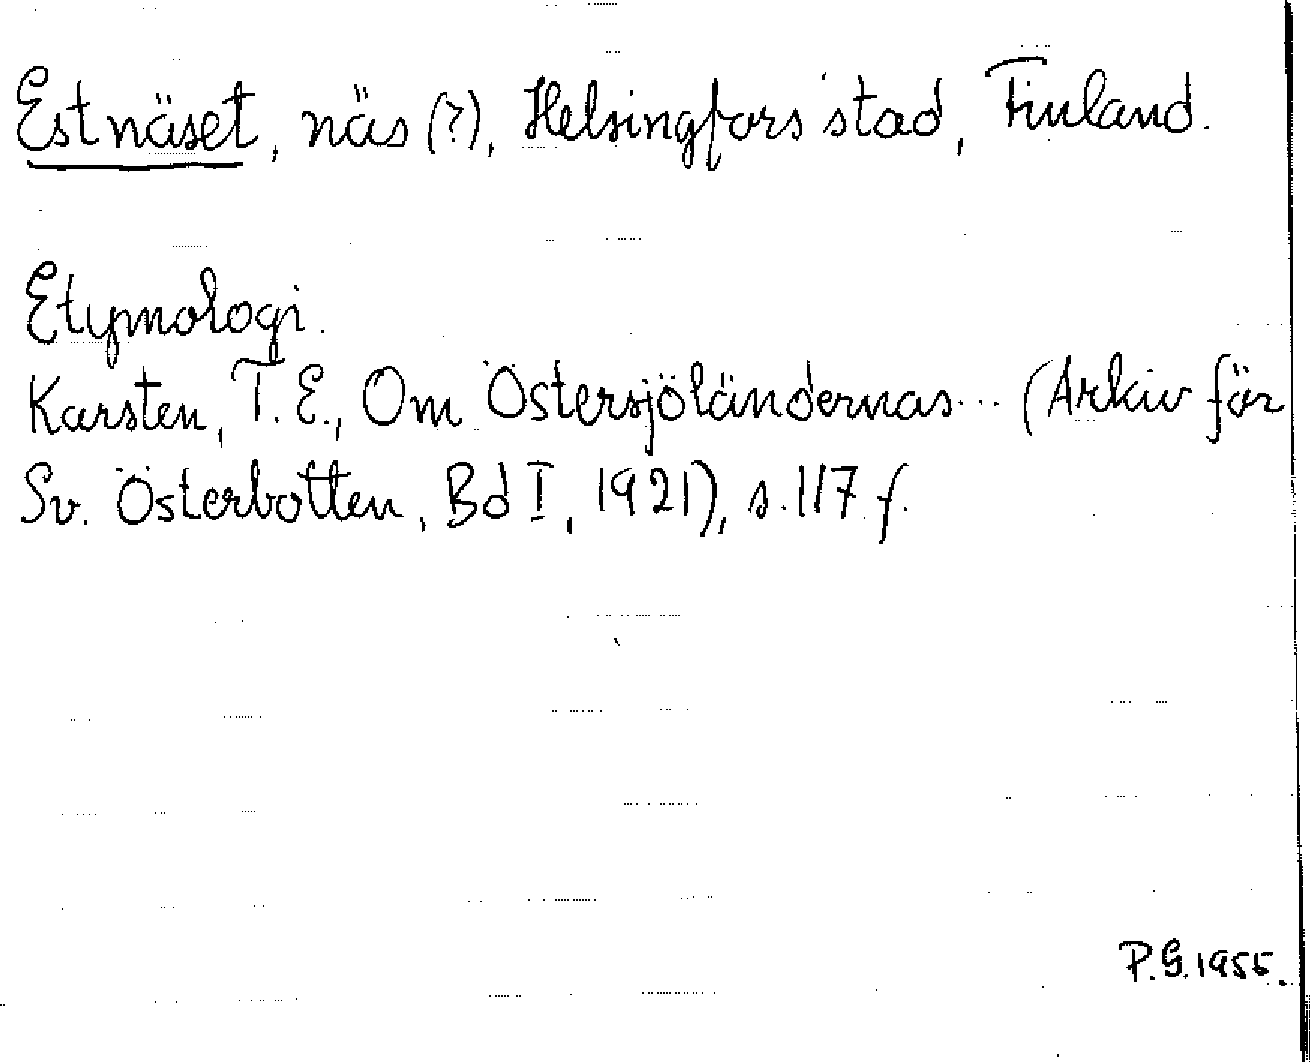 Estnäset, näs (?), Helsingfors stad, Finland.
Etymologi.
Karsten, T. E., Om Östersjöländernas... (Arkiv för
Sv. Österbotten, Bd I, 1921), s. 117 f.
P.G. 1955.